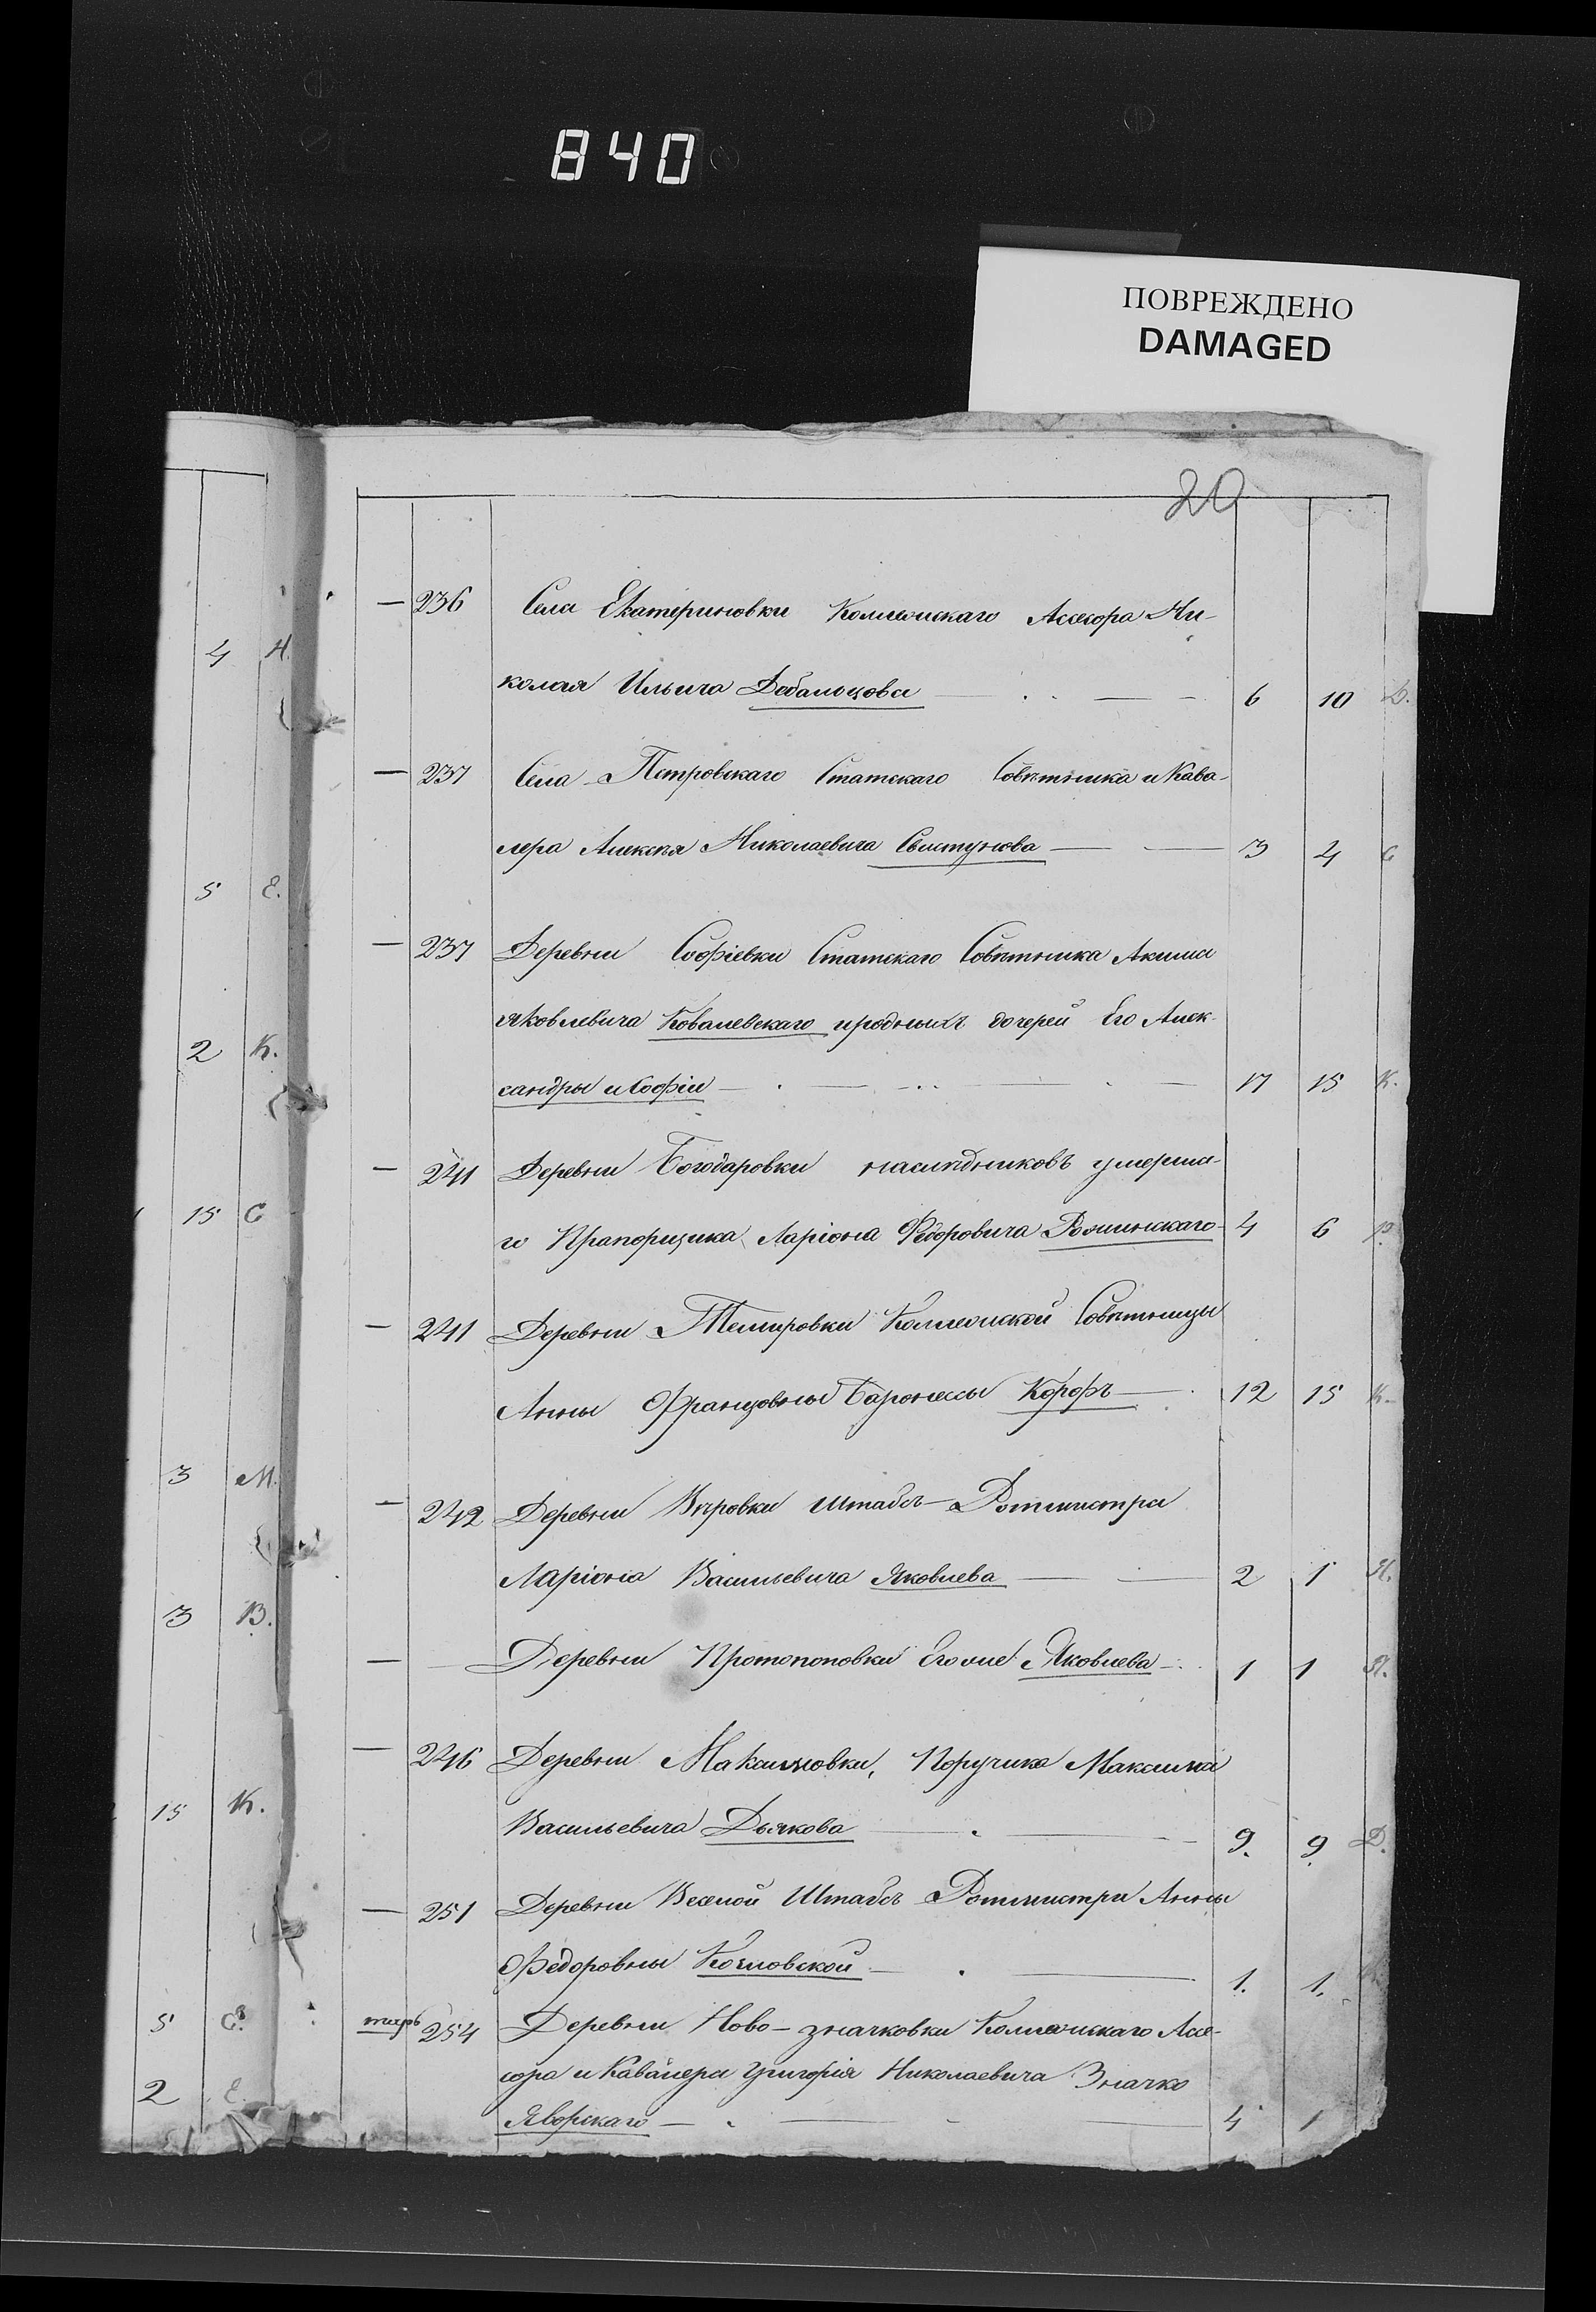 840
ПОВРЕЖДЕНО
DAMAGED
20
— 236 Села Екатериновки Коллежскаго Ассесора Ни-
колая Ильича Дебальцова — 6 10 Д.
— 237 Села Петровскаго Статскаго Совѣтника и Кава-
лера Алексѣя Николаевича Свистунова — 3 4 С
— 237 Деревни Софіевки Статскаго Совѣтника Акима
Яковлевича Ковалевскаго и родныхъ дочерей Его Алек-
сандры и Софіи — 17 15 К.
— 241 Деревни Богодаровки наслѣдниковъ умерша-
го Прапорщика Ларіона Федоровича Рошинскаго 4 6 Р.
— 241 Деревни Темировки Коллежской Совѣтницы
Анны Францовны Баронессы Корфъ — 12 15 К.
— 242 Деревни Вѣровки Штабсъ-Ротмистра
Ларіона Васильевича Яковлева — 2 1 Я.
— Деревни Протопоповки Его же Яковлева — 1 1 Я.
— 246 Деревни Максимовки, Поручика Максима
Васильевича Дьякова — 9. 9. Д.
— 251 Деревни Веселой Штабсъ Ротмистри Анны
Федоровны Козловской — 1. 1.
254 Деревни Ново-значковки Коллежскаго Ассе-
сора и Кавалера Григорія Николаевича Значко
Яворскаго — 4 1
4 Н.
5 Е.
2 К.
15 С
3 М.
3 В.
15 К.
5 С.
2 Е.